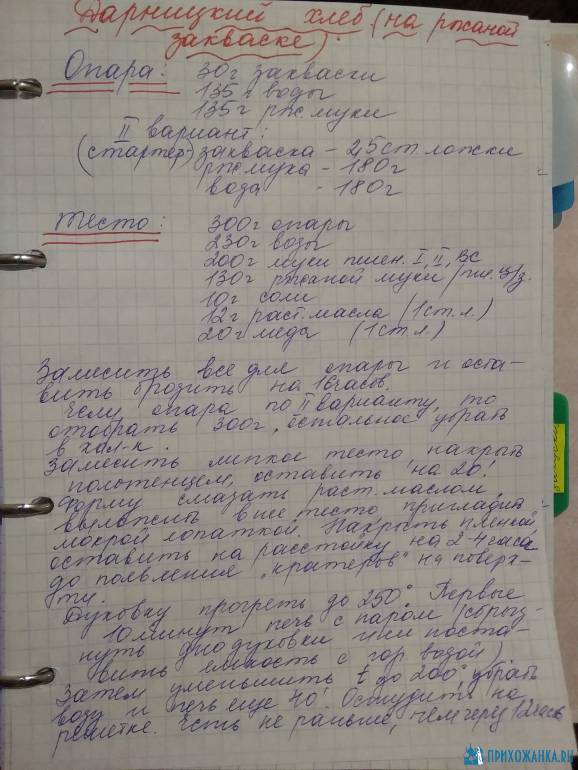 Дарницкий хлеб (на ржаной
закваске).
Опара: 30г закваски
135 г воды
135г рж.муки
II вариант:
(стартер) закваска - 2,5 ст. ложки
рж.мука - 180г
вода - 180г
Тесто: 300г опары
230г воды
200г муки пшен. I, II, ВС
130г ржаной муки /пш. ц/з.
10г соли
12г раст. масла (1 ст. л.)
20г меда (1 ст. л.)
Замесить все для опары и оста-
вить бродить на 16часов.
Если опара по II варианту, то
отобрать 300г, остальное убрать
в хол-к.
Замесить липкое тесто, накрыть
полотенцем, оставить на 20!
Форму смазать раст. маслом,
выложить в нее тесто, пригладить
мокрой лопаткой. Накрыть пленкой,
оставить на расстойку на 2-4 часа
до появления "кратеров" на поверх-
ти.
Духовку прогреть до 250°. Первые
10 минут печь с паром (сбрыз-
нуть дно духовки или поста-
вить емкость с гор. водой).
Затем уменьшить t до 200°, убрать
воду и печь еще 40! Остудить на
решетке. Есть не раньше, чем через 12 часов
ПРИХОЖАНКА.RU